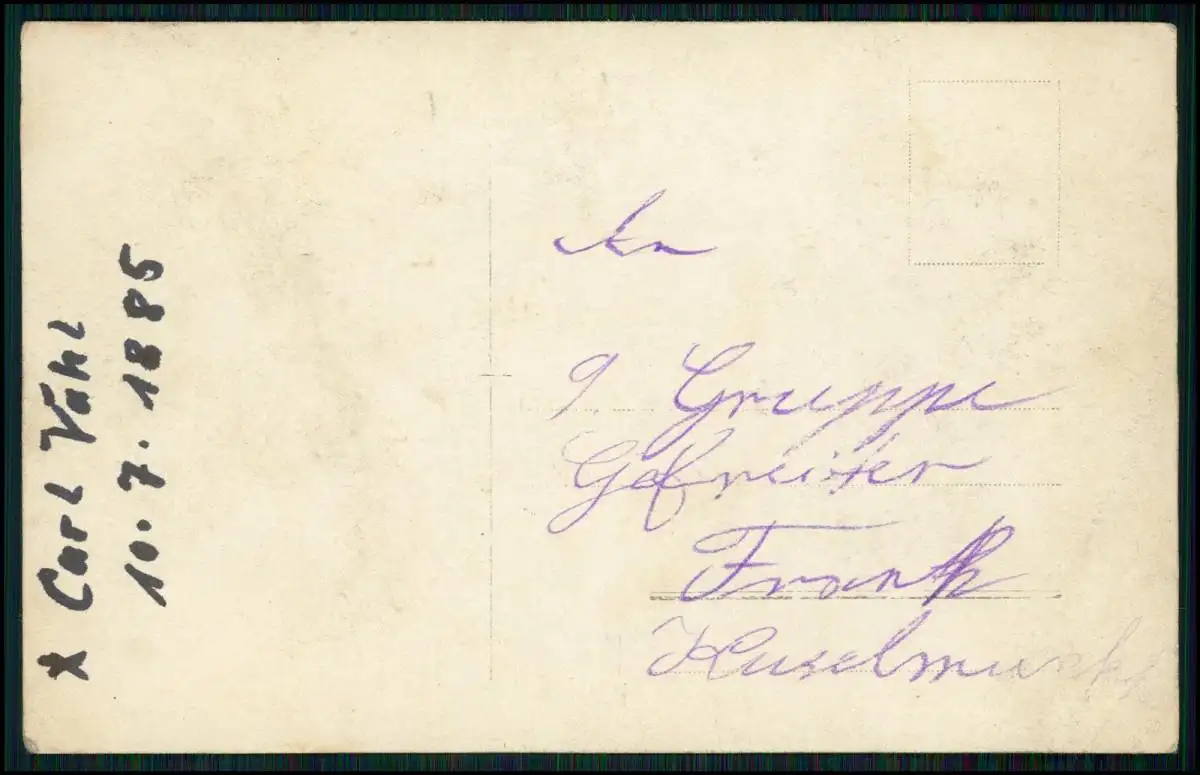 x Carl Vahl
10.7.1885
An
9 Gruppe
Gefreiter
Frank